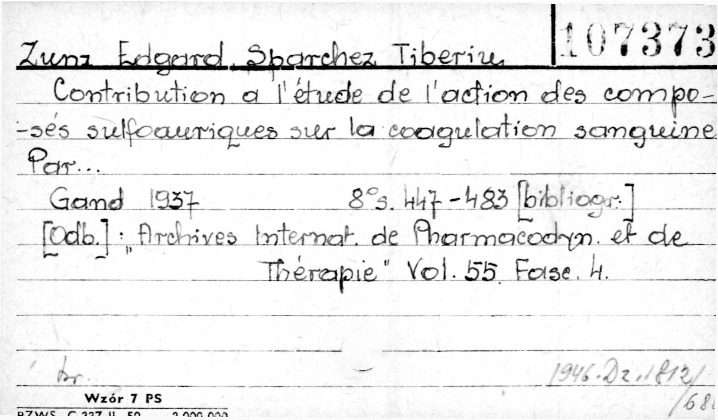 107373
Zunz Edgard, Sparchez Tiberiu
Contribution a l'étude de l'action des compo-
-sés sulfoauriques sur la coagulation sanguine
Par...
Gand 1937 8° s. 447-483 [bibliogr.]
[Odb.]: „Archives Internat. de Pharmacodyn. et de
Thérapie" Vol. 55. Fasc. 4.
br. 1946.Dz.1812/
/68
Wzór 7 PS
PZWS. C 337 II. 50 2.000.000